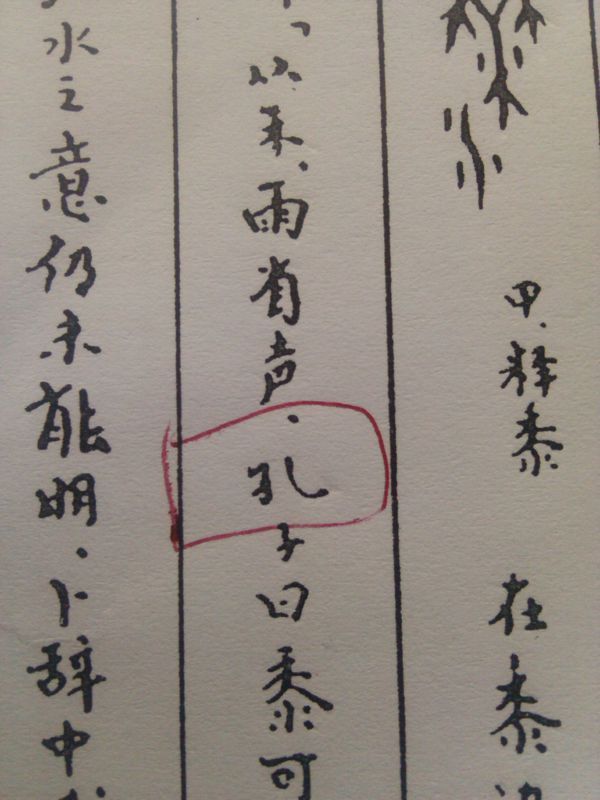 甲、释黍 在黍
从禾、雨省声、孔子曰黍可
水之意仍未能明、卜辞中